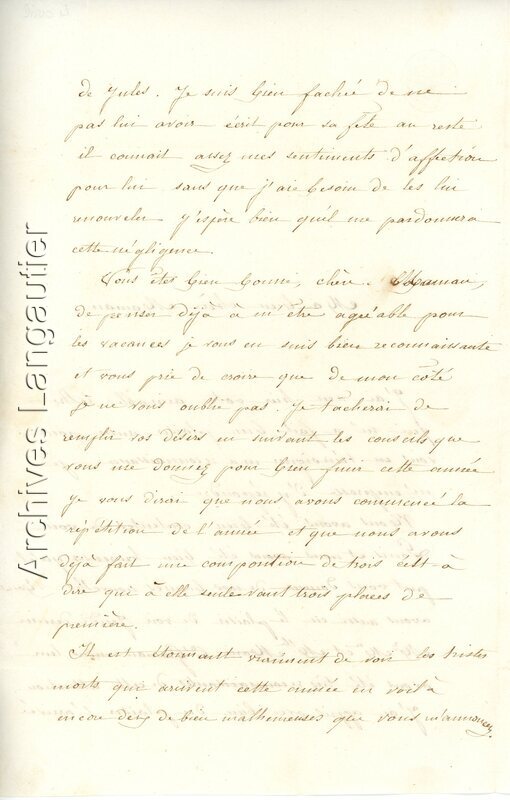 de Jules. Je suis bien fachée de ne
pas lui avoir écrit pour sa fête au reste
il connait assez mes sentiments d'affection
pour lui sans que j'aie besoin de les lui
renouveler j'espère bien qu'il me pardonnera
cette négligence.
Vous êtes bien bonne, chère Maman,
de penser déjà à m'être agréable pour
les vacances je vous en suis bien reconnaissante
et vous prie de croire que de mon côté
je ne vous oublie pas. Je tacherai de
remplir vos désirs en suivant les conseils que
vous me donnez pour bien finir cette année
Je vous dirai que nous avons commencé la
répétition de l'année et que nous avons
déjà fait une composition de trois c'est-à
dire qui à elle seule vaut trois places de
première.
Il est étonnant vraiment de voir les tristes
morts que arrivent cette année en voilà
encore deux de bien malheureuses que vous m'annoncez.
Archives Langautier